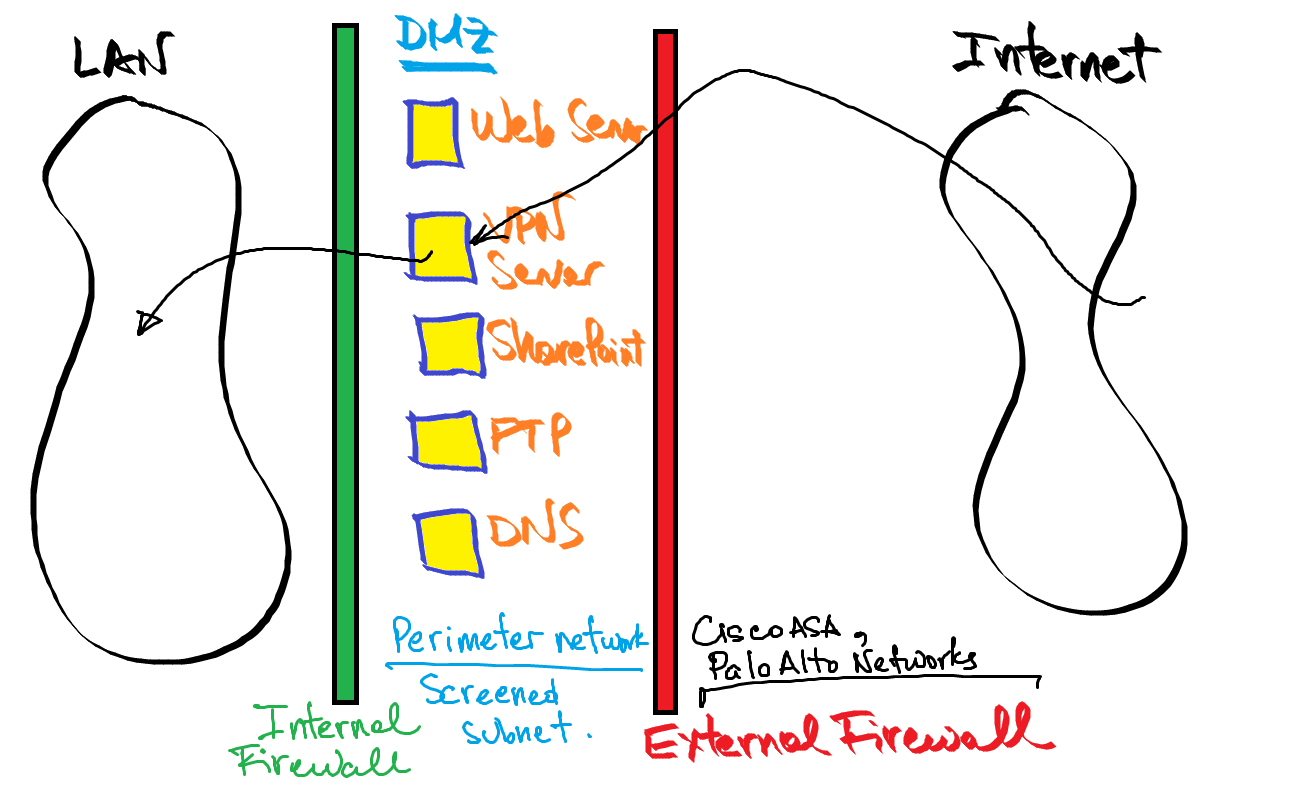 LAN
DMZ
Internet
Web Server
VPN
Server
SharePoint
FTP
DNS
Perimeter network
Screened
subnet.
Cisco ASA,
Palo Alto Networks
Internal
Firewall
External Firewall